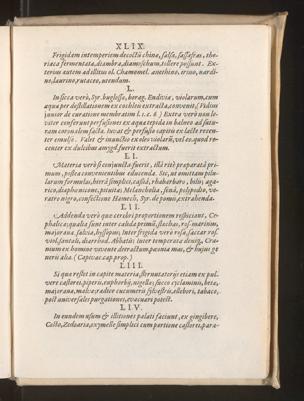 XLIX.
Frigidam intemperiem decocta china, salsa, sassafras, the-
riaca fermentata, diambra, diamoschum, tollere possunt. Ex-
terius autem ad illitus ol. Chamomel. anethino, irino, nardi-
no, laurino, rutaceo, utendum.
L.
In sicca verò, Syr. buglosse, borag. Endiviæ, violarum, cum
aqua per destillationem ex cochleis extracta, convenit. (Vidius
junior de curatione membratim l. 1. c. 8.) Extra verò non le-
viter conferunt perfusiones ex aqua tepida in balneo ad sutu-
ram coronalem facta. Iuvat & perfusio capitis ex lacte recen-
ter emulso. Valet & inunctio ex oleo violarũ, vel ex quod re-
center ex dulcibus amygd. fuerit extractum.
LI.
Materia verò si conjuncta fuerit, illã ritè præparatâ pri-
mum, postea convenientibus educenda. Sic, ut omittam pilu-
larum formulas, hierâ simplici, cassiâ, rhabarbaro, bilis; aga-
rico, diaphœnicone, pituita; Melancholia, senâ, polipodio, ve-
ratro nigro, confectione Hamech, Syr. de pomis, extrahenda.
LII.
Addenda verò quæ cerebri proportionem respiciunt, Ce-
phalica; qualia sunt inter calida primũ, stœchas, rosmarinum,
majorana, salvia, hyssopus; Inter frigida verò rosa, saccar ros.
viol. santali, diarrhod. Abbatis: inter temperata deniq, Cra-
nium ex homine vivente detractum, pæonia mas, & hujus ge-
neris alia. (Capivac. cap. prop.)
LIII.
Si qua restet in capite materia, sternutatorijs etiam ex pul-
vere castorei, piperis, euphorbij, nigellæ; succo cyclaminis, beta,
majorana, malva; radice cucumeris sylvestris, ellebori, tabaco,
post universales purgationes, evacuari potest.
LIV.
In eundem usum & illitiones palati faciunt, ex gingibere,
Costo, Zedoaria, oxymelle simplici cum portione castorei, para-